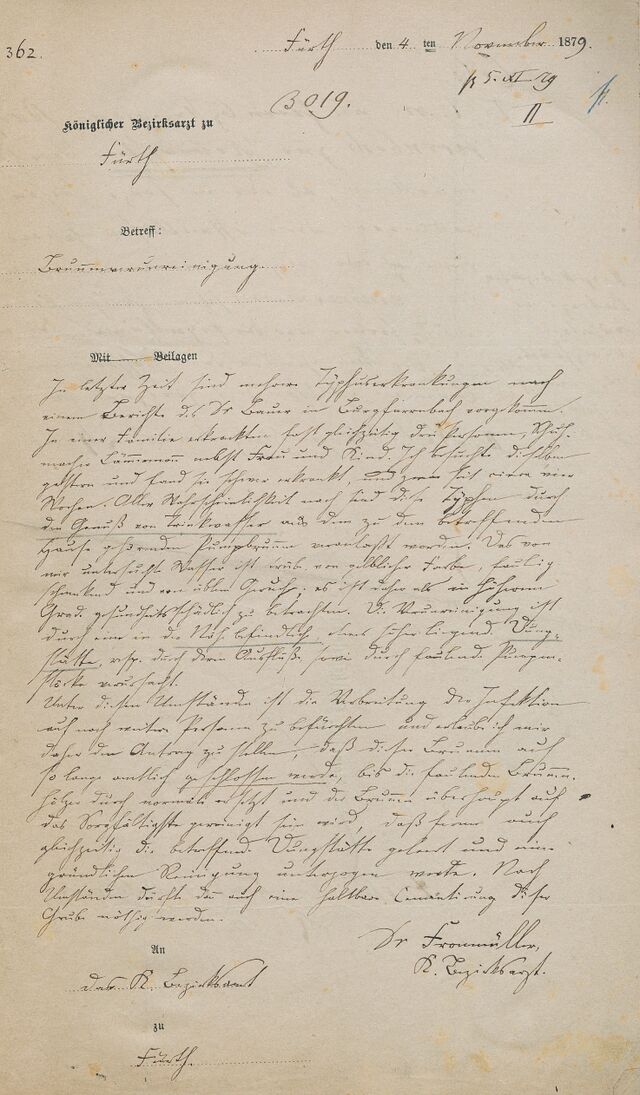 362.
Fürth den 4 ten November 1879.
5. XI 79
3019.
II
Königlicher Bezirksarzt zu
Fürth
Betreff:
Brunnenverunreinigung
Mit Beilagen
In letzter Zeit sind mehrere Typhuserkrankungen nach
einem Berichte des Dr Bauer in Burgfarrnbach vorgekommen.
In einer Familie erkrankten fast gleichzeitig drei Personen, Schuh-
macher Lämmermann nebst Frau und Kind. Ich besuchte dieselben
gestern und fand sie schwer erkrankt, und zwar seit vier
Wochen. Aller Wahrscheinlichkeit nach sind diese Typhen durch
den Genuß von Trinkwasser aus dem zu dem betreffenden
Hause gehörenden Pumpbrunnen veranlaßt worden. Das von
mir untersuchte Wasser ist trüb, von gelblicher Farbe, faulig
schmeckend und von üblem Geruch; es ist daher als in höherem
Grad gesundheitsschädlich zu betrachten. Die Verunreinigung ist
durch eine in der Nähe befindliche, etwas höher liegende Dung-
stätte, resp. durch deren Ausflüße sowie durch faulende Pumpen-
stöcke verursacht.
Unter diesen Umständen ist die Verbreitung der Infektion
auf noch weitere Personen zu befürchten und erlaube ich mir
daher den Antrag zu stellen, daß dieser Brunnen auf
so lange amtlich geschlossen werde, bis die faulenden Brunnen-
hölzer durch normale ersetzt und der Brunnen überhaupt auf
das Sorgfältigste gereinigt sein wird, daß ferner auch
gleichzeitig die betreffende Dungstätte geleert und einer
gründlichen Reinigung unterzogen werde. Nach
Umständen dürfte dann auch eine haltbare Cementirung dieser
Grube nöthig werden.
Dr Fronmüller,
K. Bezirksarzt.
An
das K. Bezirksamt
zu
Fürth